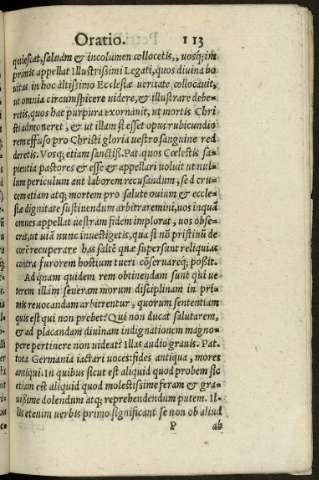 Oratio. 113
quiescat, saluam & incolumen collocetis,, uosq́; in
primis appellat Illustrissimi Legati, quos diuina bo
nitas in hoc altissimo Ecclesiæ ueritate collocauit,
ut omnia circunspicere uidere, & illustrare debe-
retis, quos hac purpura exornauit, ut mortis Chri
sti admoneret, & ut illam si esset opus rubicundio
rem effuso pro Christi gloria uestro sanguine red
deretis. Vosq; etiam sanctiss. Pat. quos Cœlestis sa
pientia pastores & esse & appellari uoluit ut nul-
lum periculum aut laborem recusandum, sed cru-
cem etiam atq; mortem pro salute ouium & eccle-
siæ dignitate sustinendum arbitraremini, uos inquã
omnes appellat uestram fidem implorat, uos obse-
crat, ut uiã nunc inuestigetis, qua si nõ pristinũ de
corẽ recuperare has saltẽ quæ supersunt reliquias
contra furorem hostium tueri cõseruareq; possit.
Ad quam quidem rem obtinendam sunt qui ue-
terem illam seueram morum disciplinam in pri-
mis reuocandam arbitrentur, quorum sententiam
quis est qui non probet? Qui non ducat salutarem,
& ad placandam diuinam indignationem magno-
pere pertinere non uideat? illas audio grauis. Pat.
tota Germania iactari uoces: fides antiqua, mores
antiqui. In quibus sicut est aliquid quod probem sic
etiam est aliquid quod molestissime feram & gra-
uissime dolendum atq; reprehendendum putem. Il-
lis etenim uerbis primo significant se non ob aliud
P ab